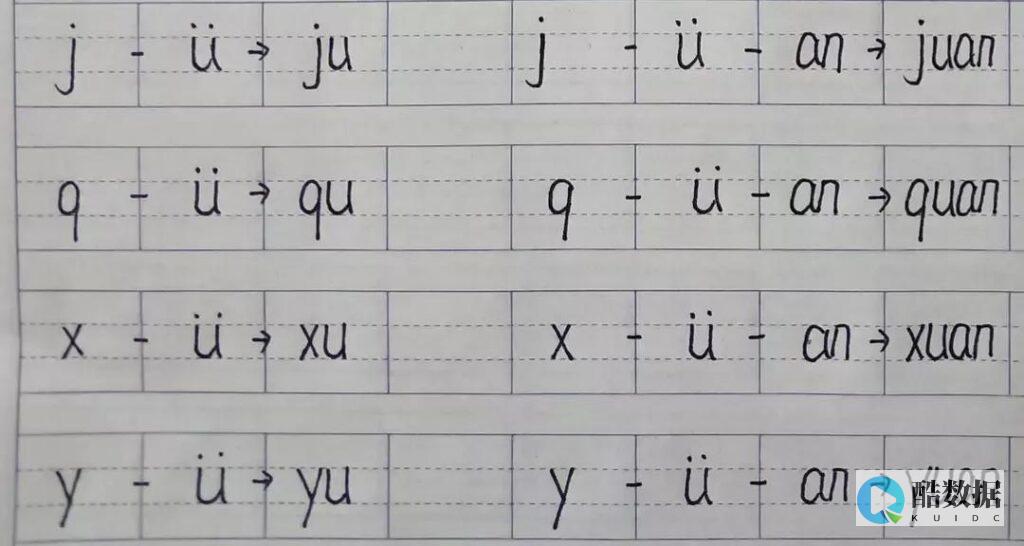 j - ü → ju j - ü - an → juan
q - ü → qu q - ü - an → quan
x - ü → xu x - ü - an → xuan
y - ü → yu y - ü - an → yuan
酷数据
KUIDC